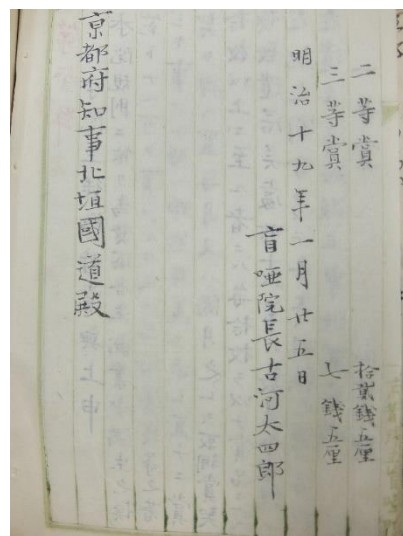 二等賞 拾貳錢五厘
三等賞 七錢五厘
明治十九年一月廿五日
盲啞院長古河太四郎
京都府知事北垣國道殿